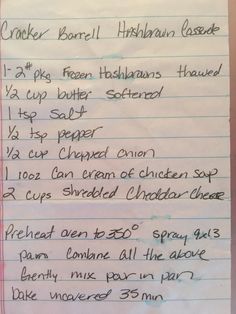 Cracker Barrell Hashbrown Casserole
1- 2# pkg Frozen Hashbrowns thawed
1/2 cup butter softened
1 tsp salt
1/2 tsp pepper
1/2 cup Chopped onion
1 10oz Can cream of chicken soup
2 cups shredded Cheddar Cheese
Preheat oven to 350° spray 9x13
pam combine all the above
Gently mix pour in pan
bake uncovered 35 min